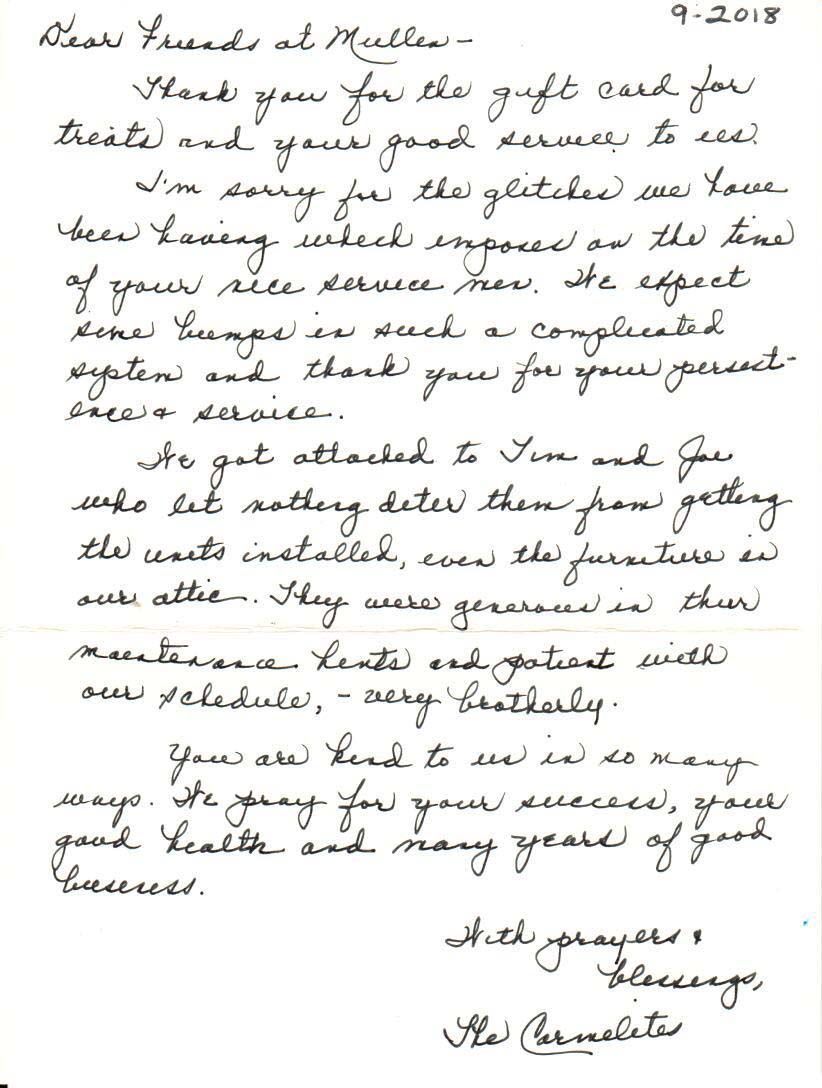 9-2018
Dear Friends at Mullen –
Thank you for the gift card for
treats and your good service to us.
I'm sorry for the glitches we have
been having which imposes on the time
of your nice service men. We expect
some bumps in such a complicated
system and thank you for your persist-
ence & service.
We got attached to Tim and Joe
who let nothing deter them from getting
the units installed, even the furniture in
our attic. They were generous in their
maintenance hints and patient with
our schedule, – very brotherly.
You are kind to us in so many
ways. We pray for your success, your
good health and many years of good
business.
With prayers &
blessings,
The Carmelites